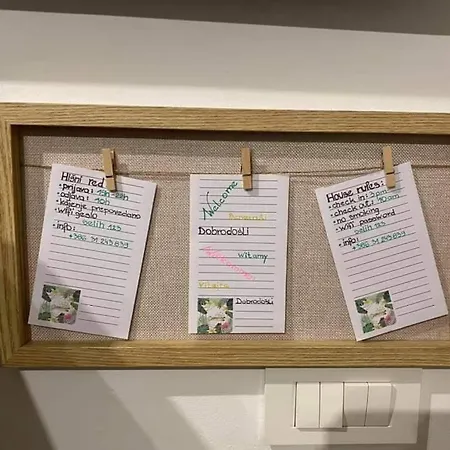 Hišni red
• prijava: 15h-22h
• odjava: 10h
• kajenje prepovedano
• wifi geslo
belih 123
• info:
+386 31 243 839
Welcome
Benvenuti
Dobrodošli
witamy
Willkommen
Vítejte
Dobrodošli
House rules:
• check in: 3pm
• check out: 10am
• no smoking
• wifi password
belih 123
• info:
+386 31 243 839